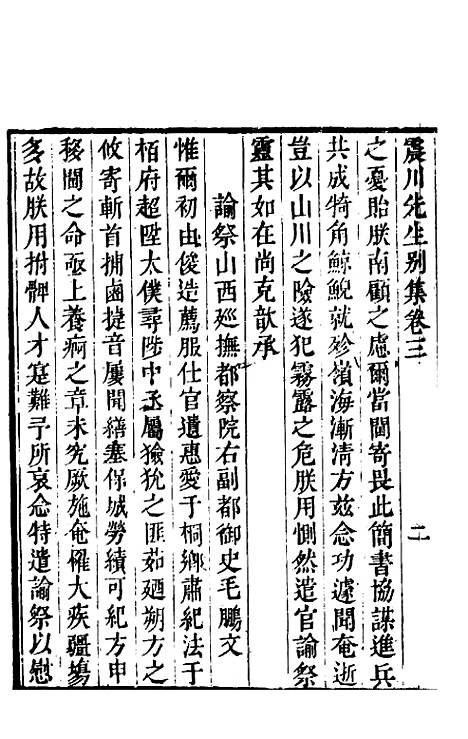 震川先生別集卷三　二
之憂貽朕南顧之慮爾當閫寄畏此簡書協謀進兵
共成犄角鯨鯢就殄嶺海漸清方兹念功遽聞奄逝
豈以山川之險遂犯霧露之危朕用惻然遣官諭祭
靈其如在尚克歆承
諭祭山西廵撫都察院右副都御史毛鵬文
惟爾初由俊造薦服仕官遺惠愛于桐鄉肅紀法于
栢府超陞太僕尋陟中丞屬獫狁之匪茹廼朔方之
攸寄斬首捕鹵捷音屢聞繕塞保城勞績可紀方申
移閫之命亟上養痾之章未究厥施奄罹大疾疆埸
多故朕用拊髀人才寔難予所哀念特遣諭祭以慰